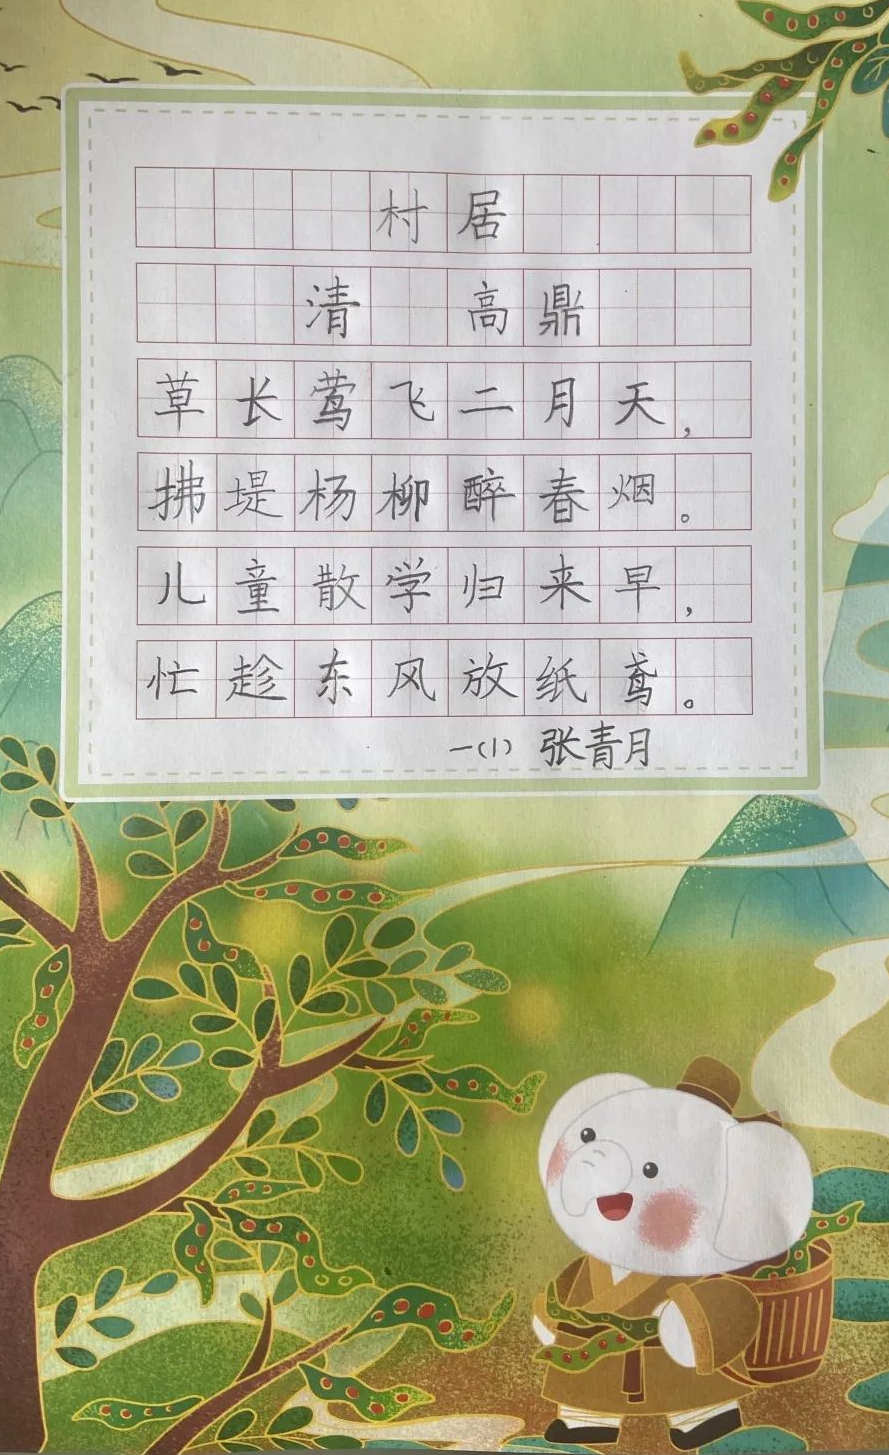 村居
清 高鼎
草长莺飞二月天，
拂堤杨柳醉春烟。
儿童散学归来早，
忙趁东风放纸鸢。
一(1) 张青月